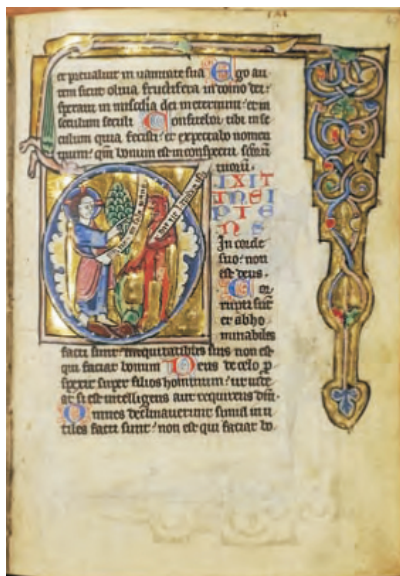 et preualuit in uanitate sua Ego au
tem sicut oliua fructifera in domo dei:
speraui in mis̄cdia dei in eternum: et in
seculum seculi Confitebor tibi in se
culum quia fecisti: et expectabo nomen
tuum: qm̄ bonum est in conspectu sc̄o
tuorum.
IXIT
INSI
PIE
NS
In corde
suo: non
est deus.
Cor
rupti sūt
et abho
minabiles
facti sunt in iniquitatibus suis non est
qui faciat bonum Deus de celo p
spexit super filios hominum: ut uide
at si est intelligens aut requirens dm̄.
Omnes declinauerunt simul in u
tiles facti sunt: non est qui faciat bo.